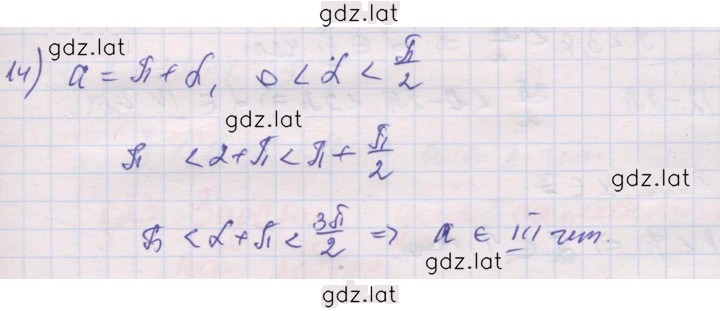 gdz.lat
gdz.lat
14) a = π + α, 0 < α < π/2
gdz.lat
π < α + π < π + π/2
gdz.lat
π < α + π < 3π/2 => a ∈ III чет.
gdz.lat
gdz.lat